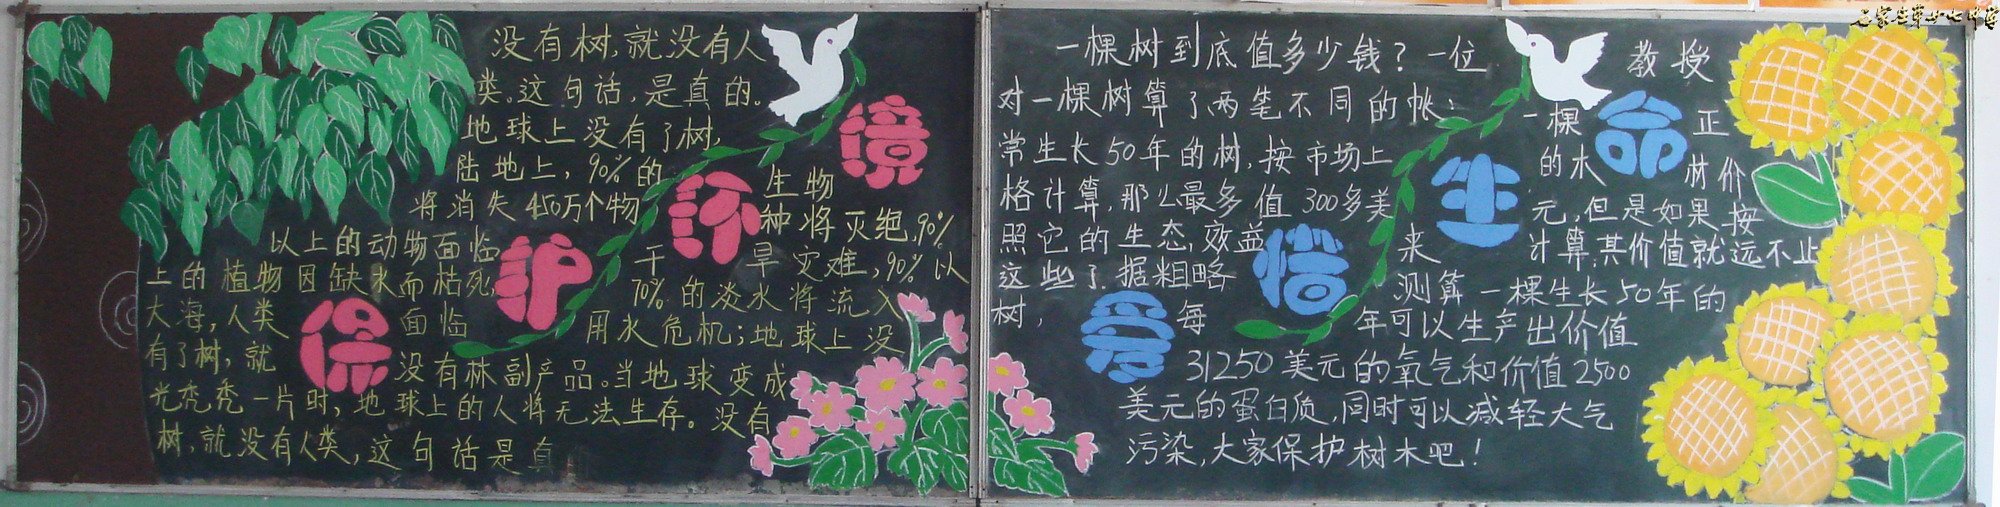 没有树，就没有人
类。这句话，是真的。
地球上没有了树，
陆地上，90%的生物
将消失450万个物种将灭绝，90%
以上的动物面临干旱灾难，90%以
上的植物因缺水而枯死70%的淡水将流入
大海，人类面临用水危机；地球上没
有了树，就没有林副产品。当地球变成
光秃秃一片时，地球上的人将无法生存。没有
树，就没有人类，这句话是真
保护环境
一棵树到底值多少钱？一位教授
对一棵树算了两笔不同的帐：一棵正
常生长50年的树，按市场上的木材价
格计算，那么最多值300多美元，但是如果按
照它的生态，效益来计算，其价值就远不止
这些了．据粗略测算一棵生长50年的
树，每年可以生产出价值
31250美元的氧气和价值2500
美元的蛋白质，同时可以减轻大气
污染，大家保护树木吧！
爱惜生命